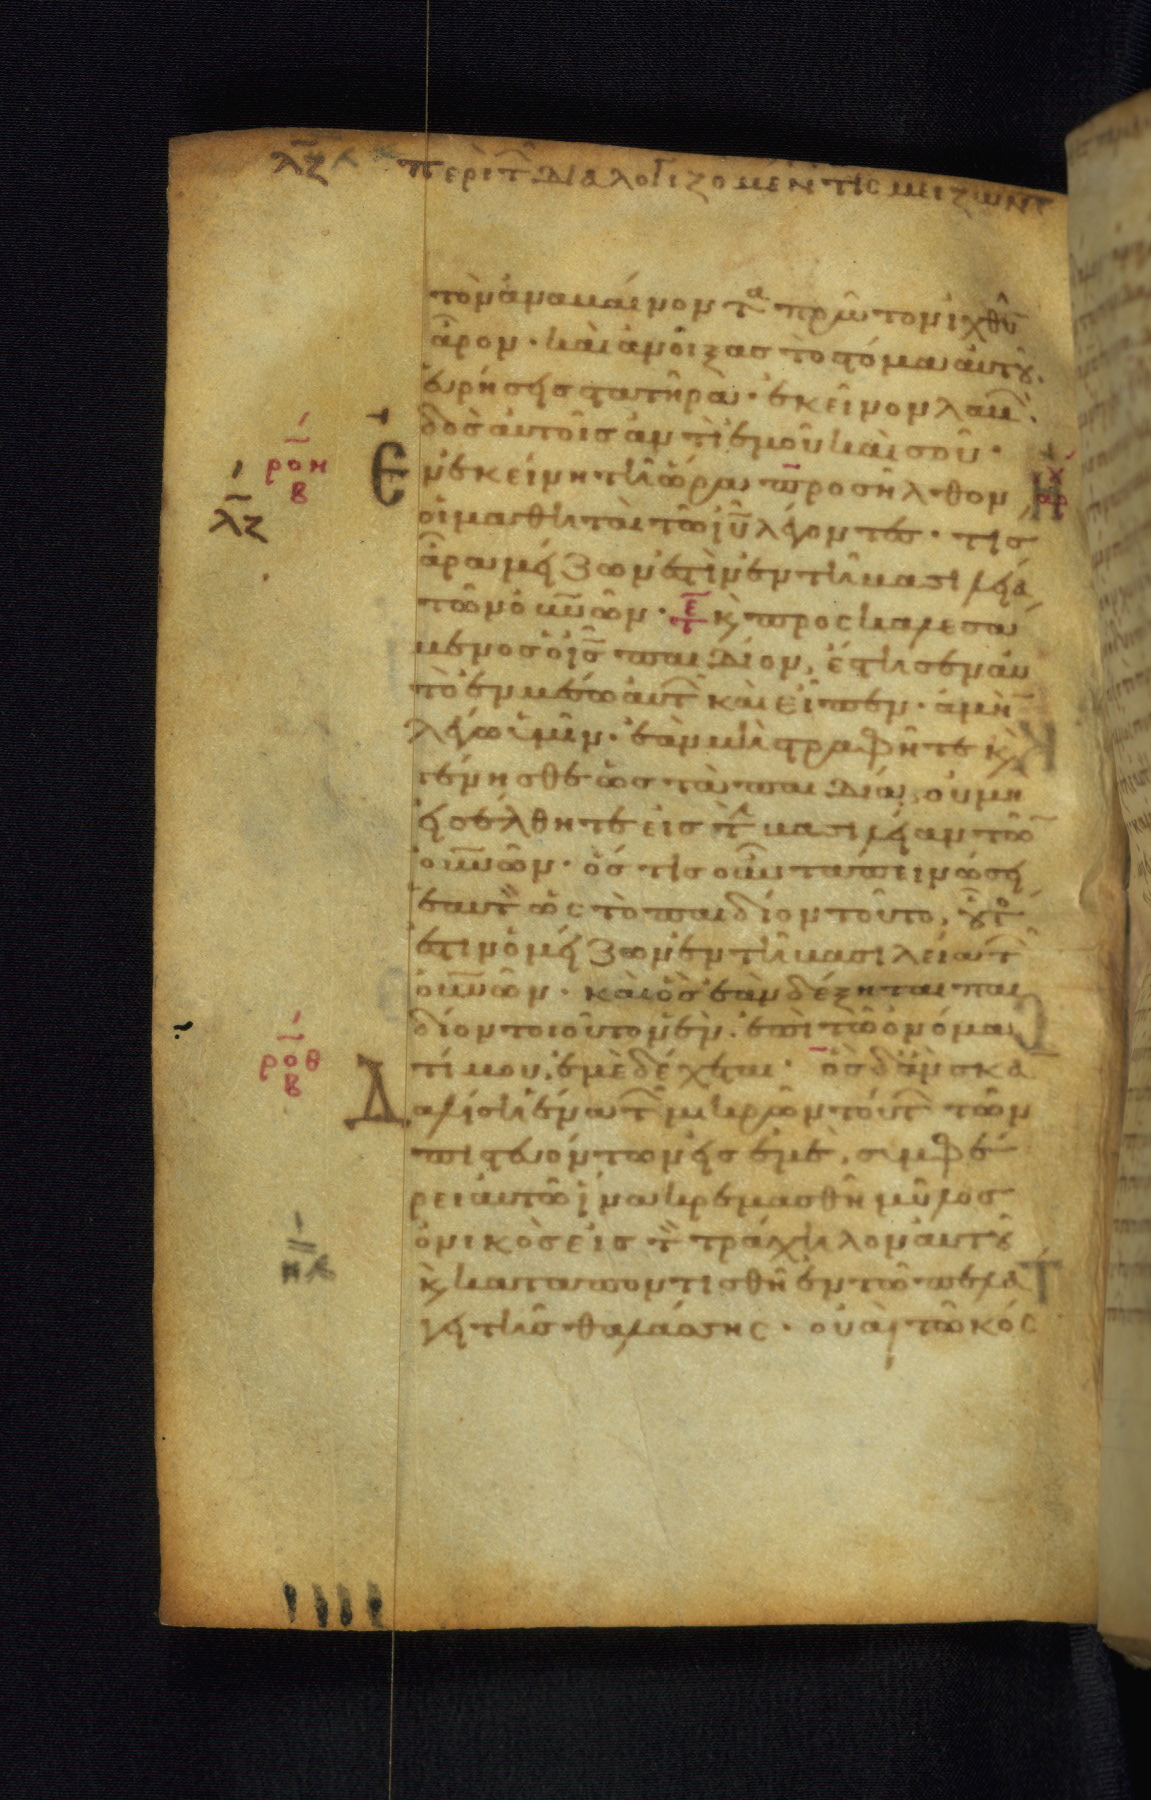 λζ περὶ τ διαλογιζομέν τίς μείζων
τὸν ἀναβαίνον τα πρῶτον ἰχθῦ
ἆρον· καὶ ἀνοίξας τὸ στόμα αὐτοῦ.
εὑρήσεις στατῆρα· ἐκεῖνον λαβ.
δὸς αὐτοῖς ἀντὶ ἐμοῦ καὶ σοῦ·
ροη
β
λζ
Ἐν ἐκείνη τῆ ὥρα προσῆλθον
οἱ μαθηταὶ τῶ ιυ λέγοντες· τίς
ἄρα μείζων ἐστὶν ἐν τῆ βασιλεία
τῶν οὐνῶν· κ προσκαλεσά
μενος ὁ ις παιδίον, ἔστησεν αὐ
τὸ ἐν μέσω αὐτ καὶ εἶπεν· ἀμὴ
λέγω ὑμῖν· ἐὰν μὴ στραφῆτε κ
γένησθε ὡς τὰ παιδία, οὐ μὴ
εἰσέλθητε εἰς τ βασιλείαν τῶ
οὐνῶν· ὅστις οὖν ταπεινώσει
ἑαυτ ὡς τὸ παιδίον τοῦτο, οὗτ
ἐστιν ὁ μείζων ἐν τῆ βασιλεία τ
οὐνῶν· καὶ ὃς ἐὰν δέξηται παι
δίον τοιοῦτον ἓν ἐπὶ τῶ ὀνόμα
ροθ
β
τί μου, ἐμὲ δέχεται· ὃς δ ἂν σκα
Δαλίση ἕνα τ μικρῶν τούτ τῶν
πιστευόντων εἰς ἐμέ, συμφέ
ρει αὐτῶ ἵνα κρεμασθῆ μῦλος
ὀνικὸς εἰς τ τράχηλον αὐτοῦ
κ καταποντισθῆ ἐν τῶ πελά
γει τῆς θαλάσσης· οὐαὶ τῶ κόσ